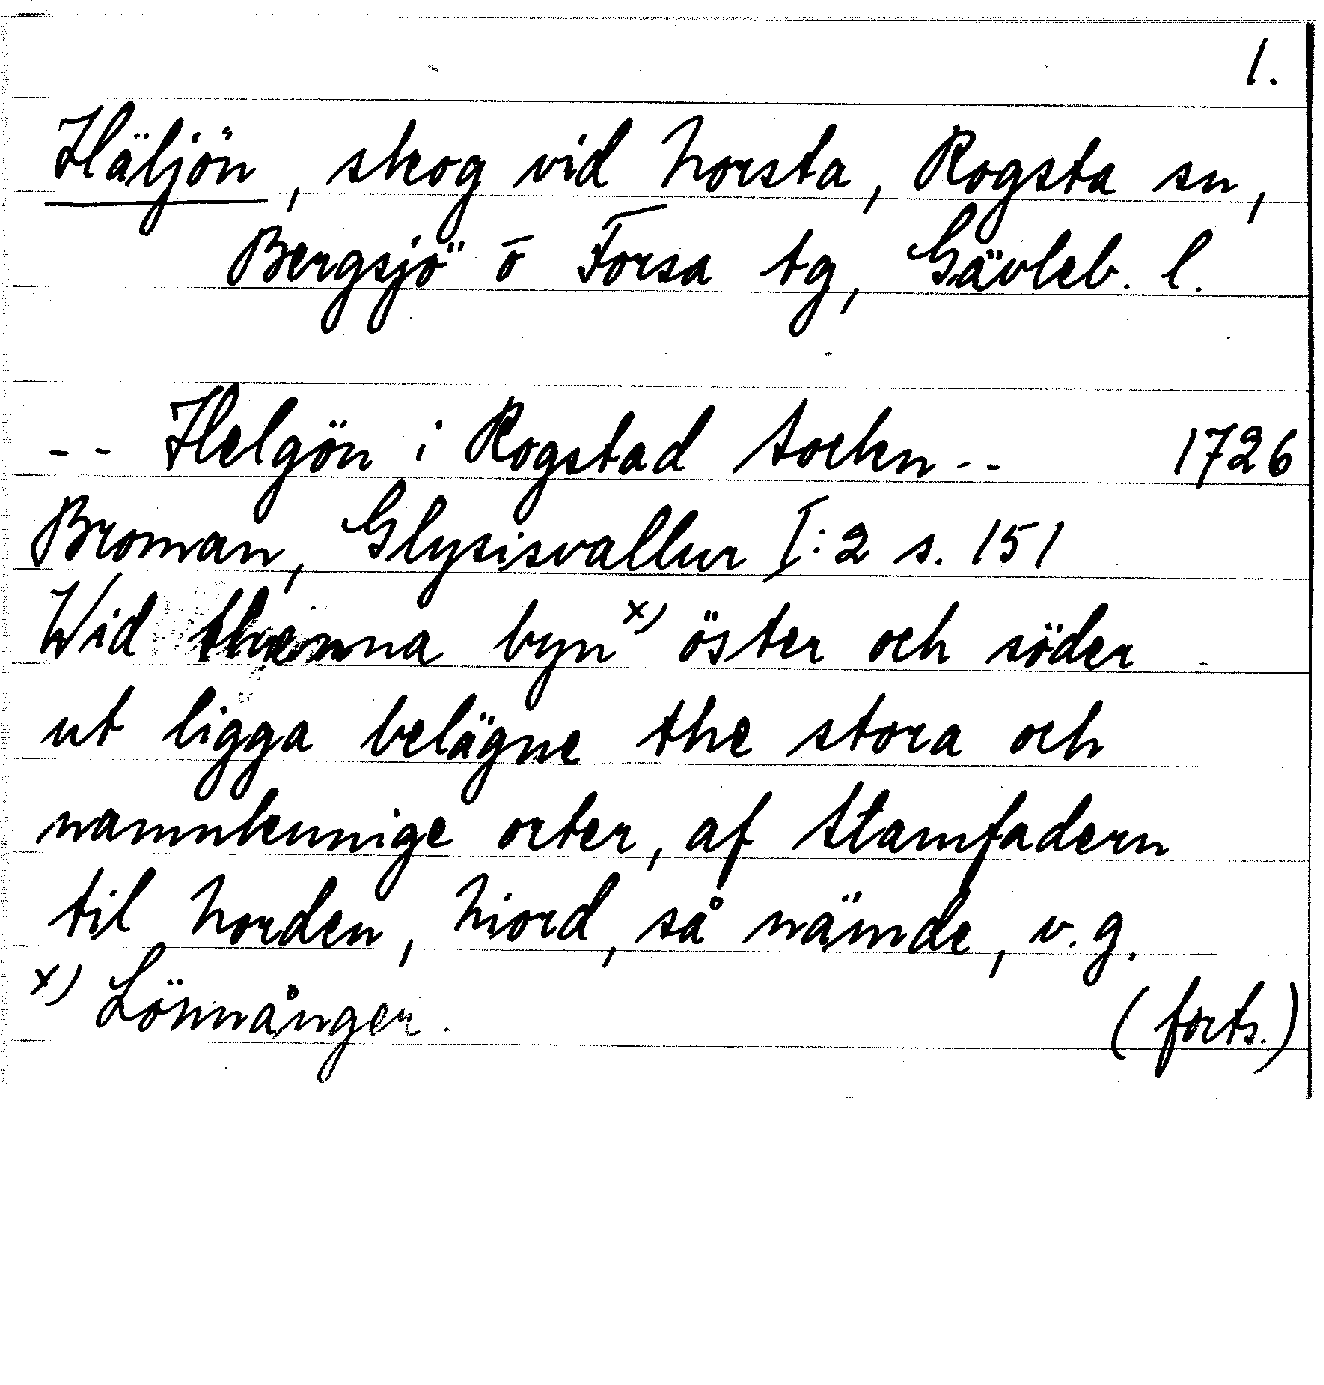 1.
Häljön, skog vid Norsta, Rogsta sn,
Bergsjö o Forsa tg, Gävleb. l.
-- Helgön i Rogstad Sockn -- 1726
Broman, Glysisvallur I:2 s. 151
Wid thenna byn x) öster och söder
ut ligga belägne the stora och
namnkunnige orter, af Stamfadern
til Norden, Niord, så nämde, v.g.
x) Lönnånger. (forts.)